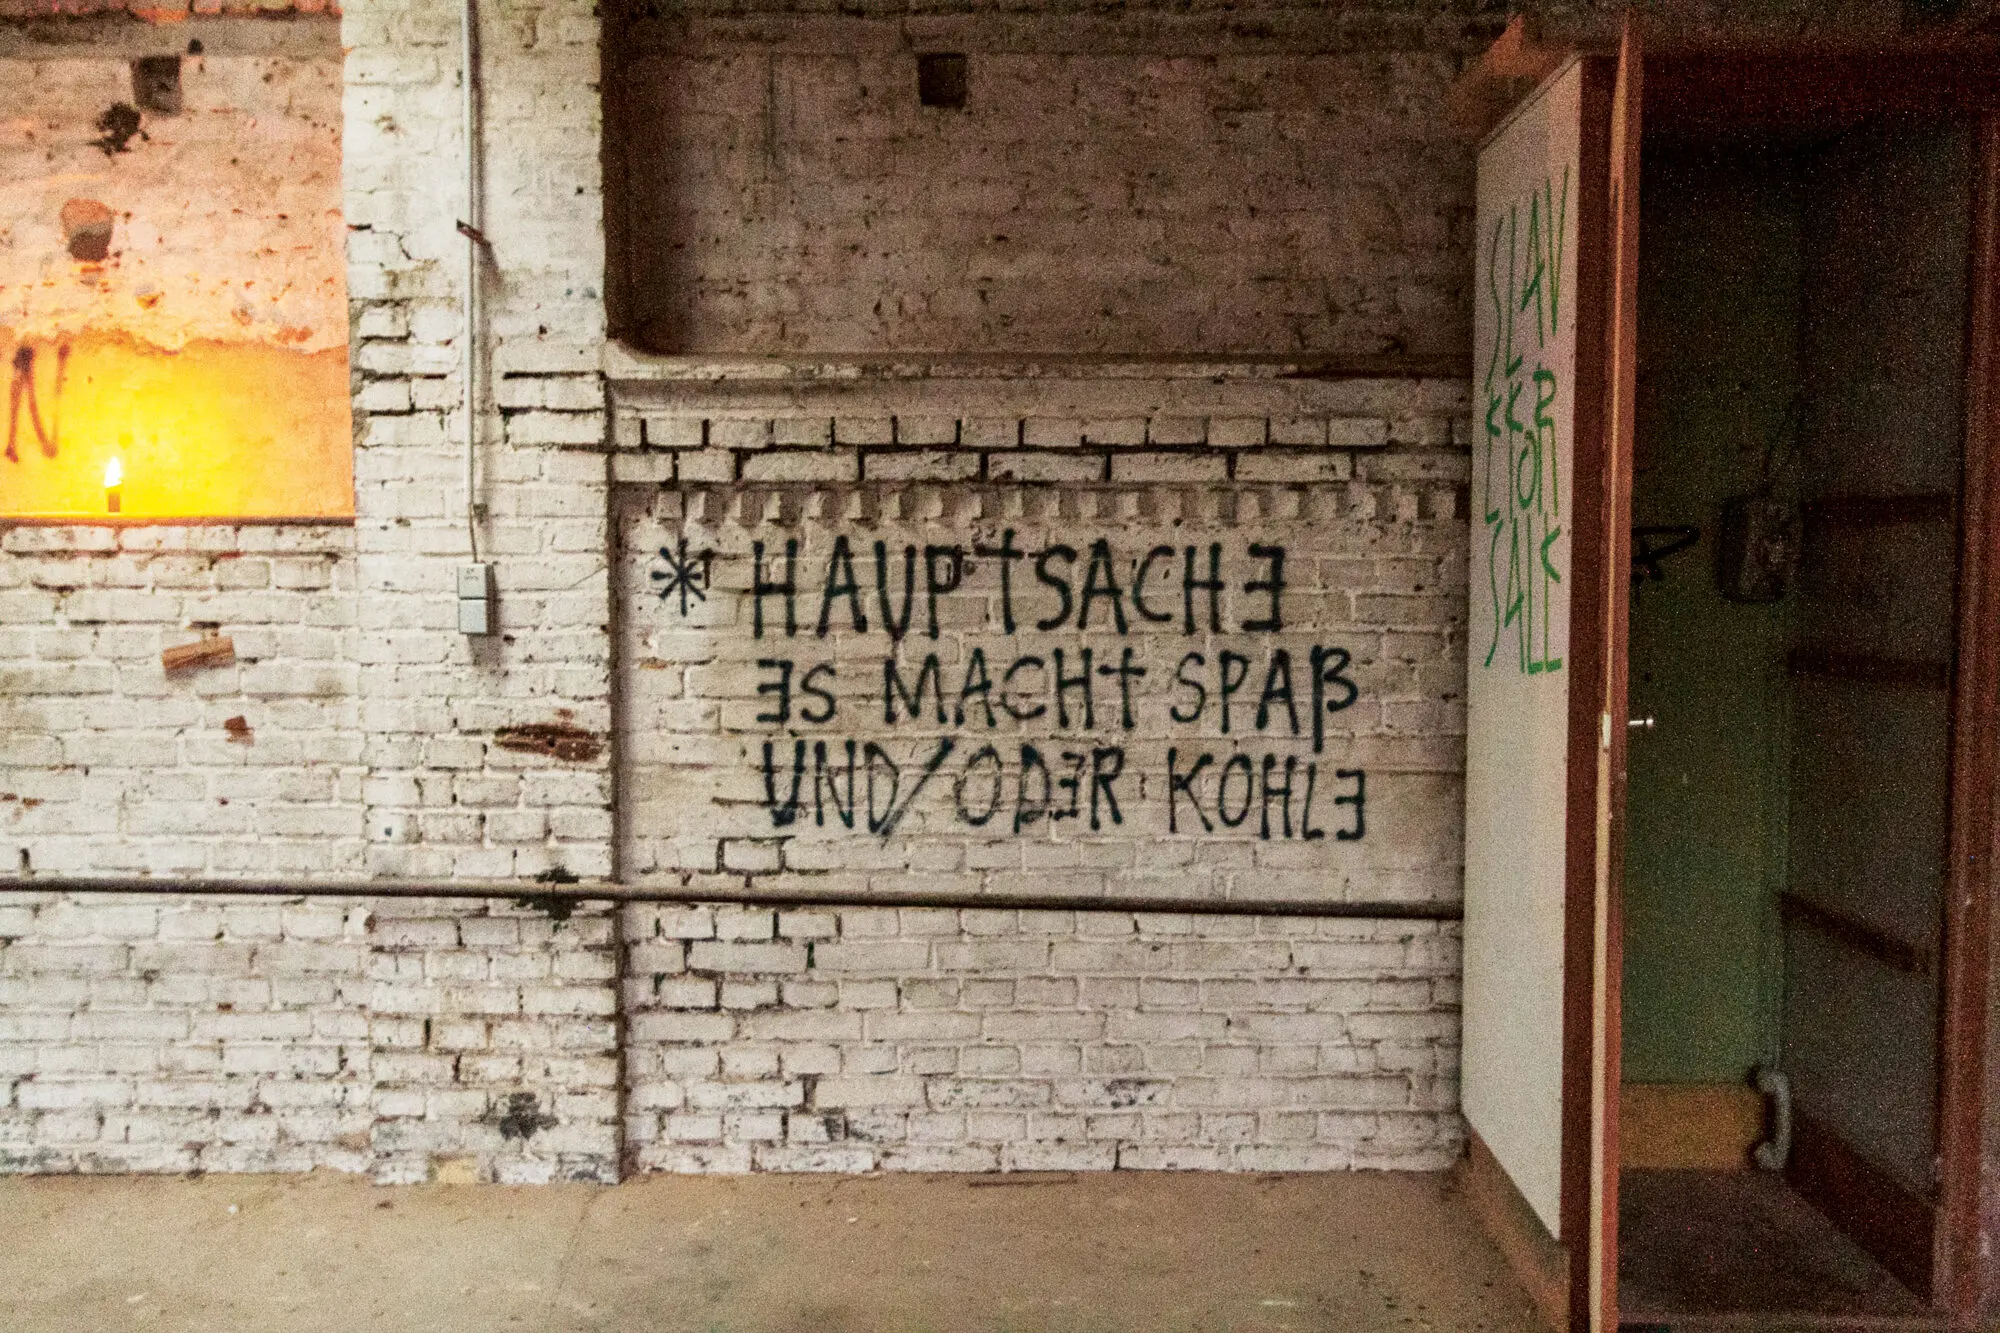 N
* HAUPTSACHE
ES MACHT SPAß
UND/ODER KOHLE
SLAV